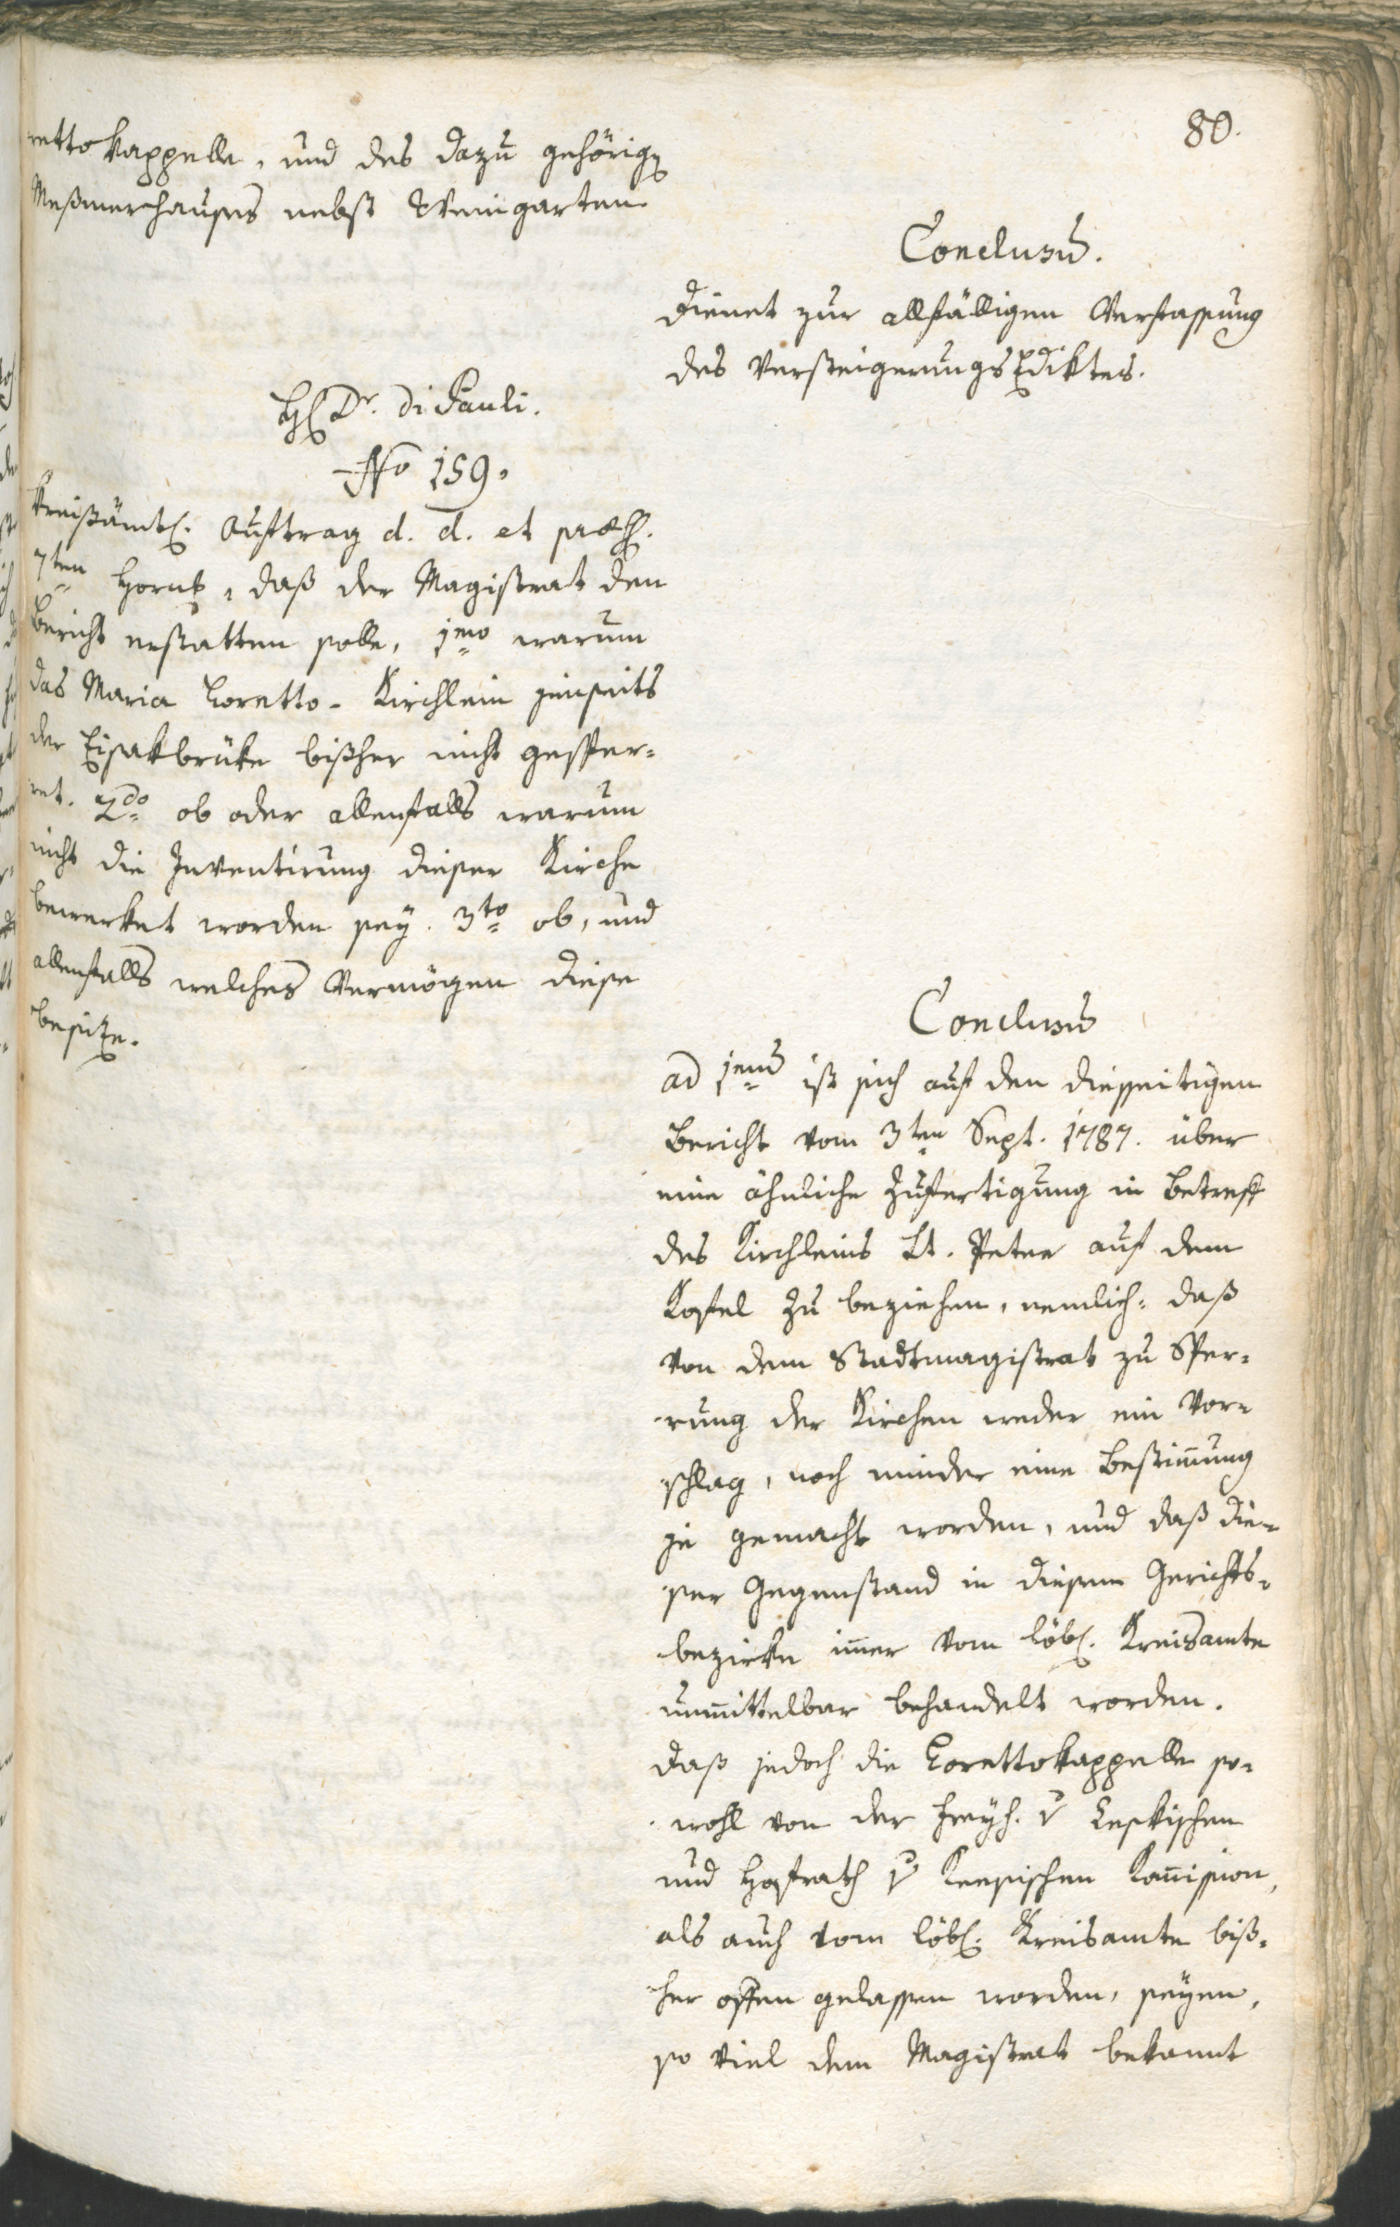 80.
retto kappelle, und des dazu gehörigen
Meßmerhauses nebst Weingarten.
Conclusum.
Dienet zur allfälligen Verfassung
des VersteigerungsEdiktes.
H Dr. di Pauli.
No 159.
Kreißämtl. Auftrag d. d. et præs.
7ten Horn, daß der Magistrat den
Bericht erstatten solle, 1mo warum
das Maria Loretto- Kirchlein jenseits
der Eisakbrüke bißher nicht gesper=
ret. 2do ob oder allenfalls warum
nicht die Inventirung dieser Kirche
bewerket worden sey. 3tio ob, und
allenfalls welches Vermögen diese
besitze.
Conclusum
ad 1mum ist sich auf den diesseitigen
Bericht vom 3ten Sept. 1787. über
eine ähnliche Zufertigung in Betreff
des Kirchleins St. Peter auf dem
Kofel zu beziehen, nemlich: daß
von dem Stadtmagistrat zu Sper=
rung der Kirchen weder ein Vor=
schlag, noch minder eine Bestimmung
je gemacht worden, und daß die=
ser Gegenstand in diesem Gerichts=
bezirke immer vom löbl. Kreisamte
unmittelbar behandelt worden.
Daß jedoch die Lorettokappelle so=
wohl von der Freyh. v
und Hofrath v Kommission,
als auch vom löbl. Kreisamte biß=
her offen gelassen worden, seyen,
so viel dem Magistrat bekannt